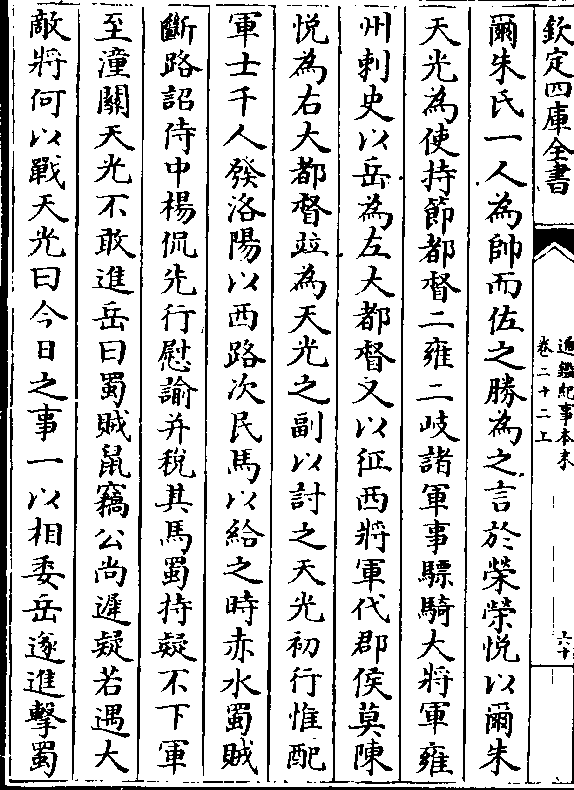 欽定四庫全書
通鑑紀事本末
卷二十二上
六十
爾朱氏一人為帥而佐之勝為之言於榮榮悦以爾朱
天光為使持節都督二雍二岐諸軍事驃騎大將軍雍
州刺史以岳為左大都督又以征西將軍代郡侯莫陳
悦為右大都督竝為天光之副以討之天光初行惟配
軍士千人發洛陽以西路次民馬以給之時赤水蜀賊
斷路詔侍中楊侃先行慰諭并税其馬蜀持疑不下軍
至潼關天光不敢進岳曰蜀賊鼠竊公尚遲疑若遇大
敵將何以戰天光曰今日之事一以相委岳遂進擊蜀